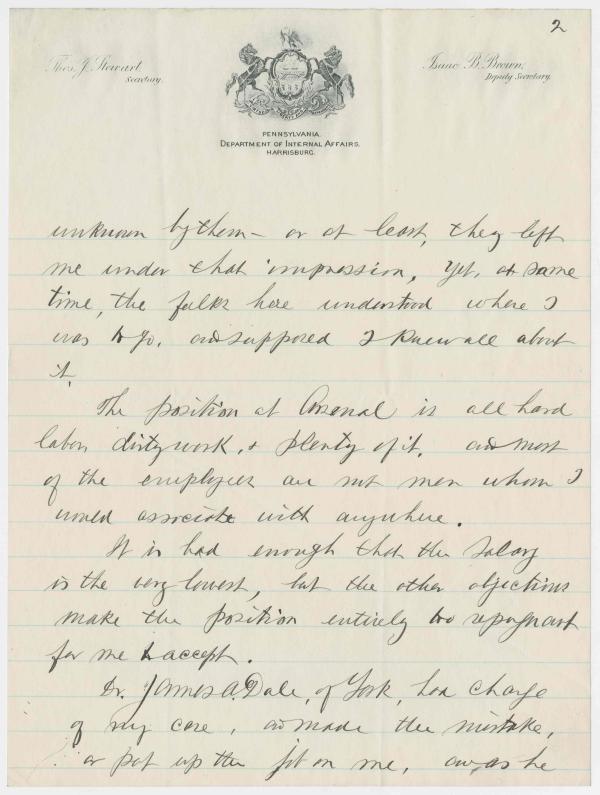 2
Thos. J. Stewart,
Secretary.
Isaac B. Brown,
Deputy Secretary.
PENNSYLVANIA.
DEPARTMENT OF INTERNAL AFFAIRS.
HARRISBURG.
unknown by them – or at least, they left
me under that impression, yet, at same
time, the folks here understood where I
was to go, and supposed I knew all about
it.
The position at Arsenal is all hard
labor, dirty work, & plenty of it, and most
of the employees are not men whom I
would associate with anywhere.
It is bad enough that the salary
is the very lowest, but the other objections
make the position entirely too repugnant
for me to accept.
Dr. James A. Dale, of York, had charge
of my case, and made the mistake,
or put up the job on me, and as he